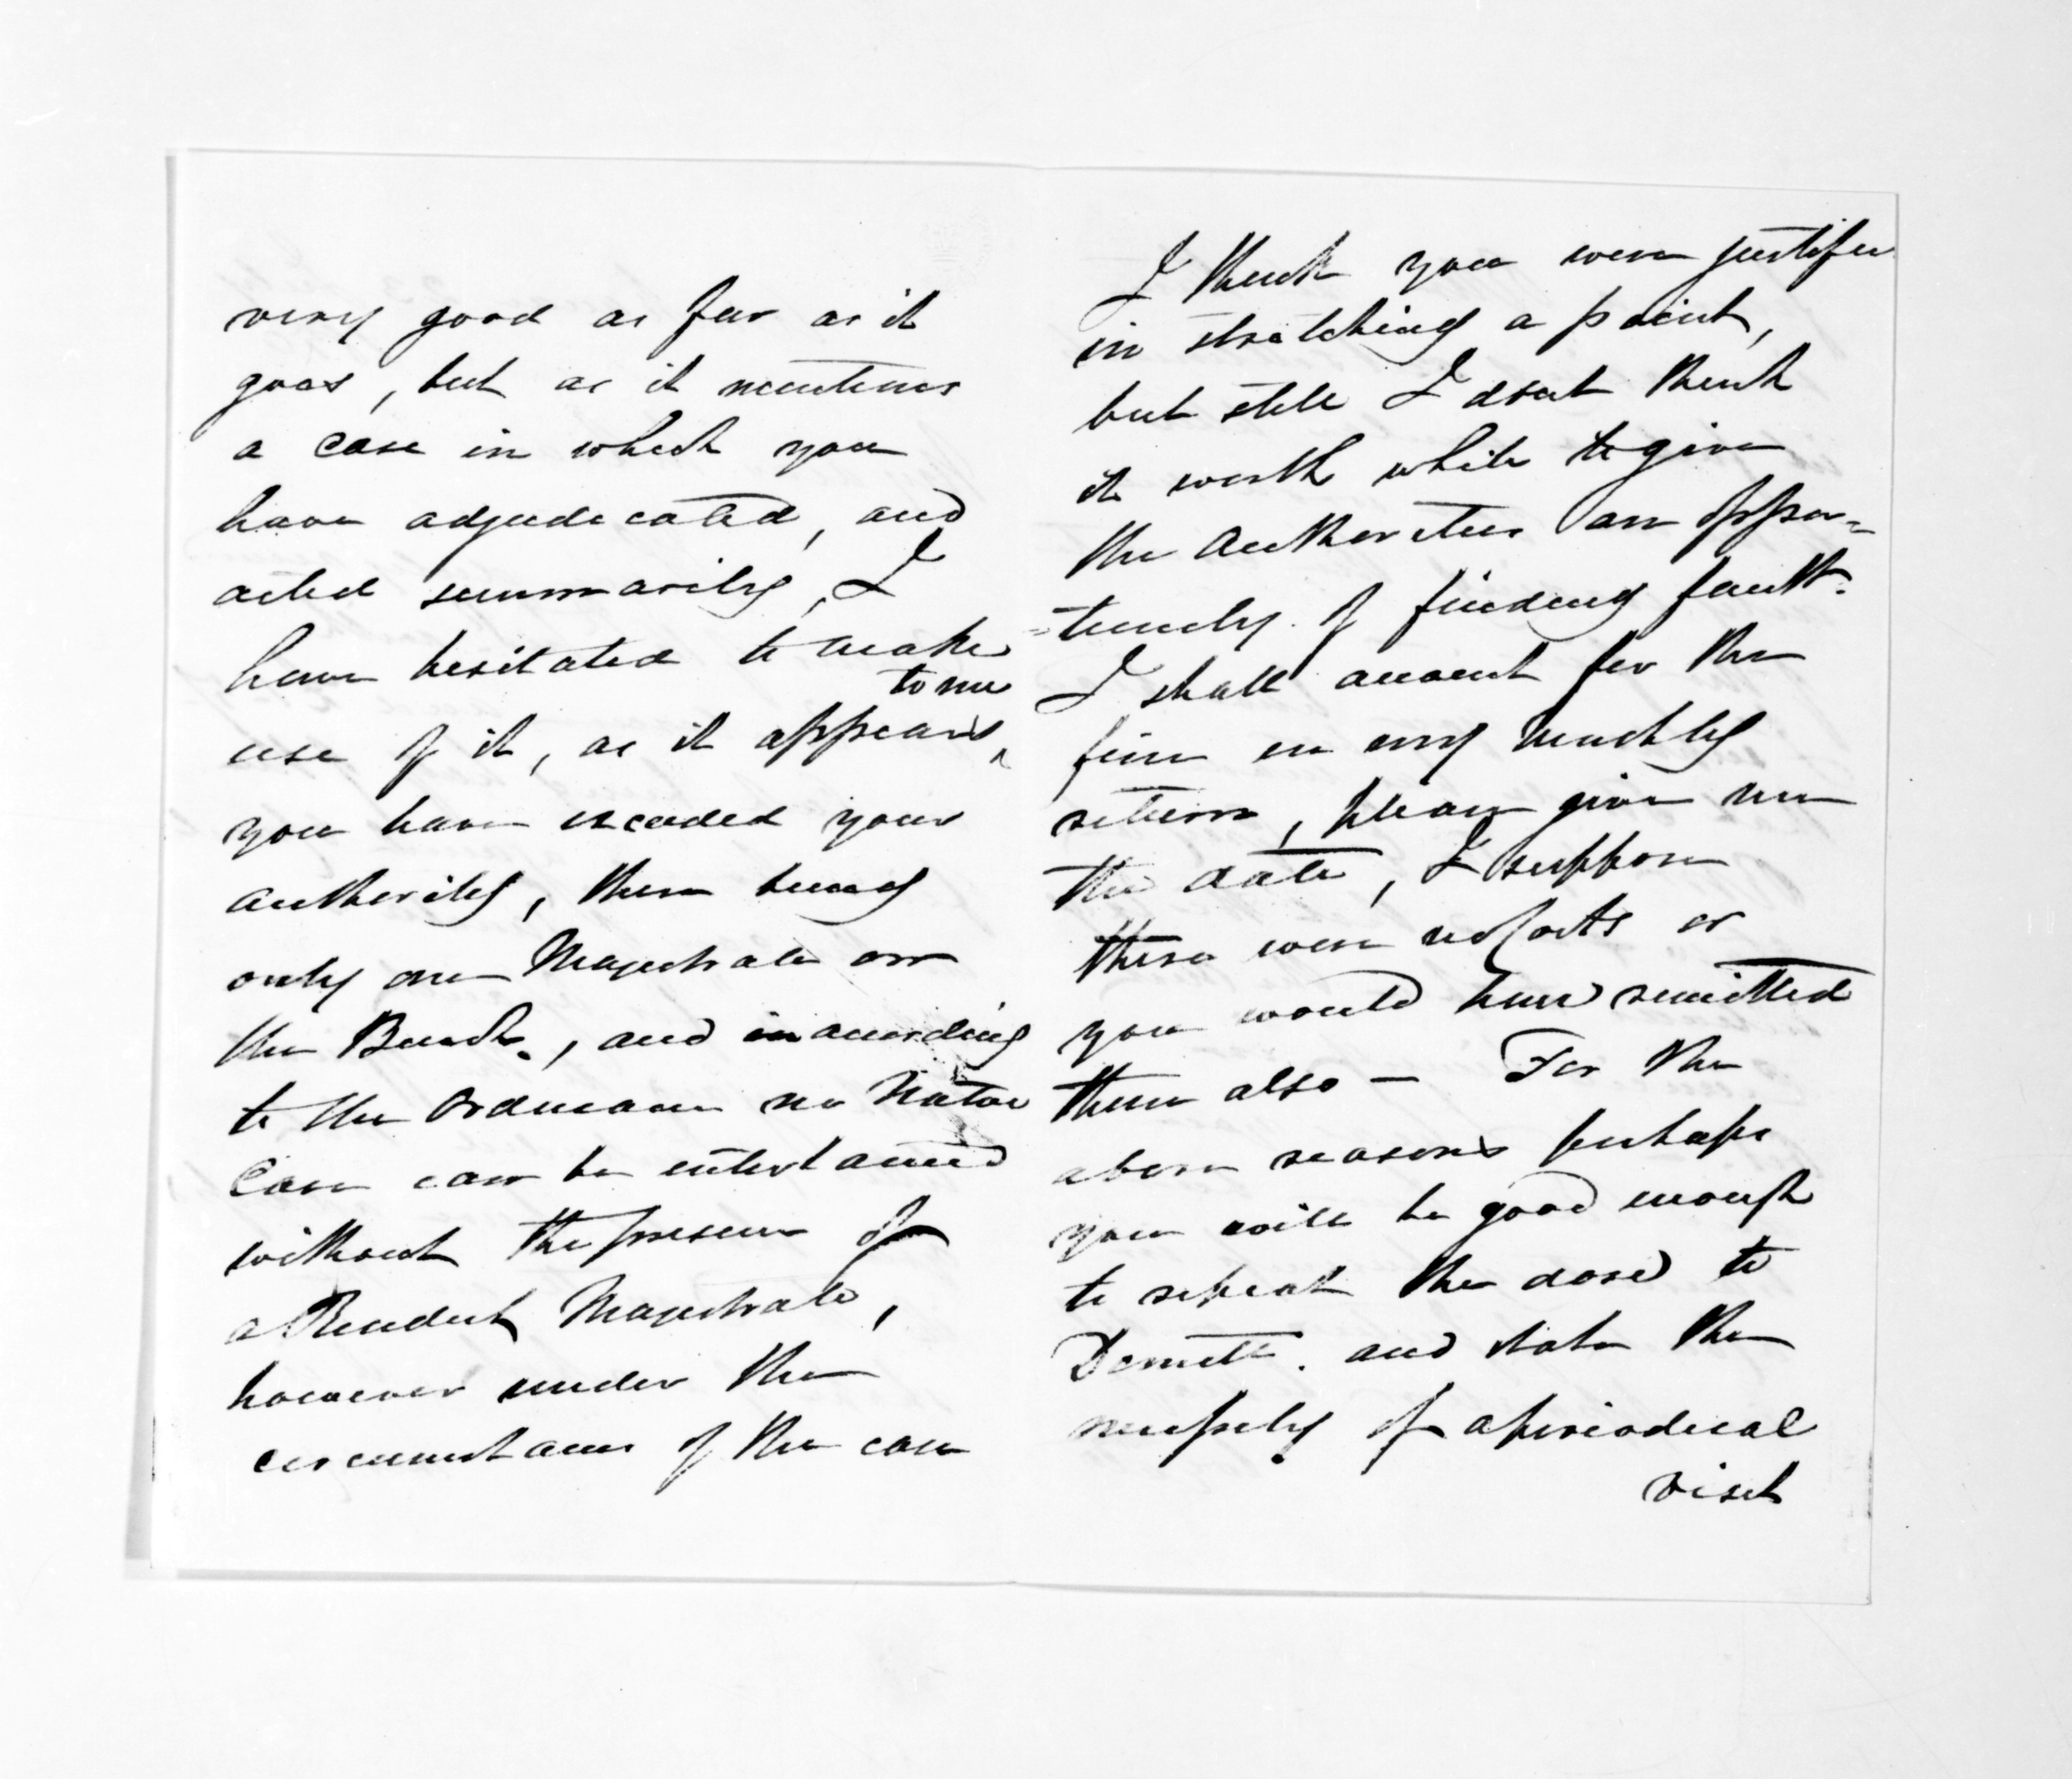 very good as far as it
goes, but as it mentions
a case in which you
have adjudicated, and
acted summarily, I
have hesitated to make
to me
use of it, as it appears
you have exceeded your
authority, there being
only one Magistrate on
the Bench, and in according
to the Ordinance no Native
Case can be entertained
without the presence of
a Resident Magistrate,
however under the
circumstances of the case
I think you were justified
in stretching a point,
but still I dont think
it worth while to give
the Authorities an oppor=
=tunity of finding fault.
I shall account for the
fine in my monthly
return, please give me
the date, I suppose
there were no costs or
you would have remitted
them also — For the
above reasons perhaps
you will be good enough
to repeat the dose to
Domett. and state the
necessity of a periodical
visit